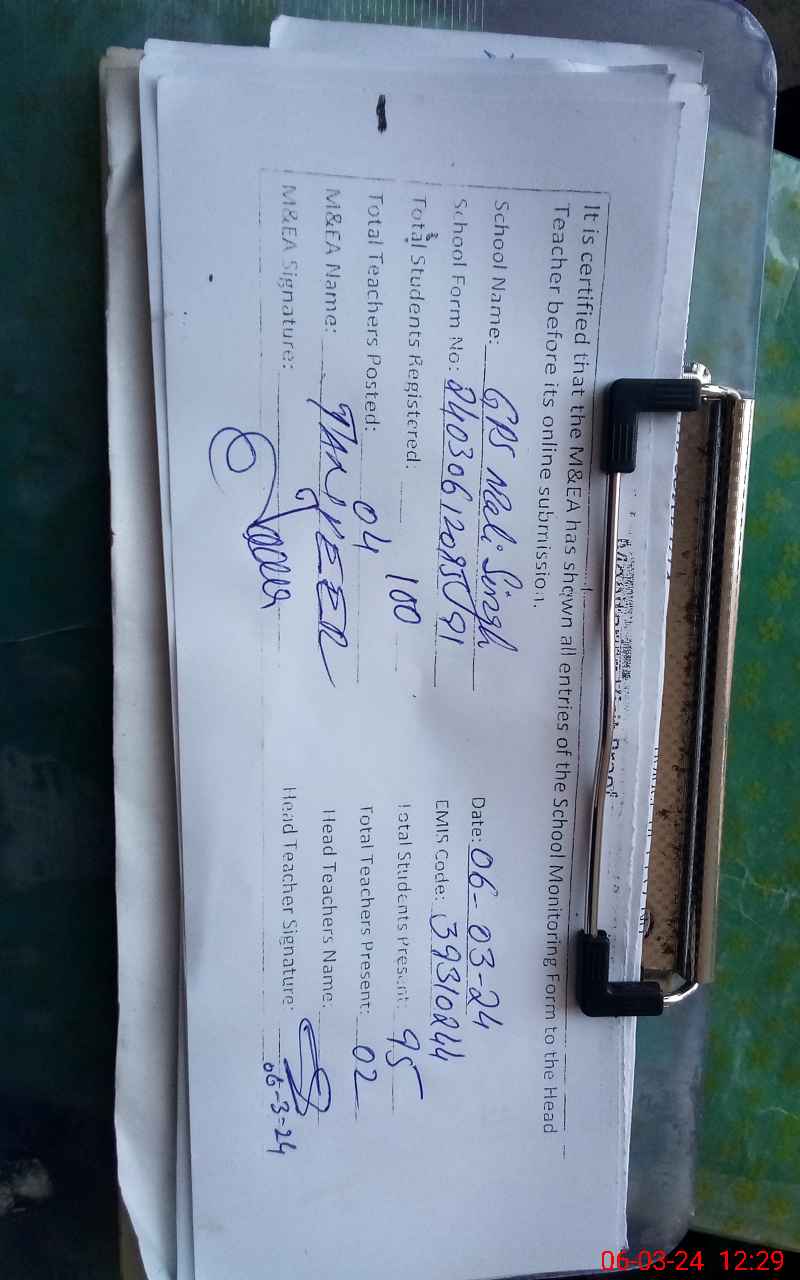 It is certified that the M&EA has shown all entries of the School Monitoring Form to the Head
Teacher before its online submission.
School Name: GPS Singh Date: 06-03-24
School Form No: EMIS Code: 39310244
Total Students Registered: 100 Total Students Present: 95
Total Teachers Posted: 04 Total Teachers Present: 02
M&EA Name: Head Teachers Name:
M&EA Signature: Head Teacher Signature:
06-3-24
06-03-24 12:29